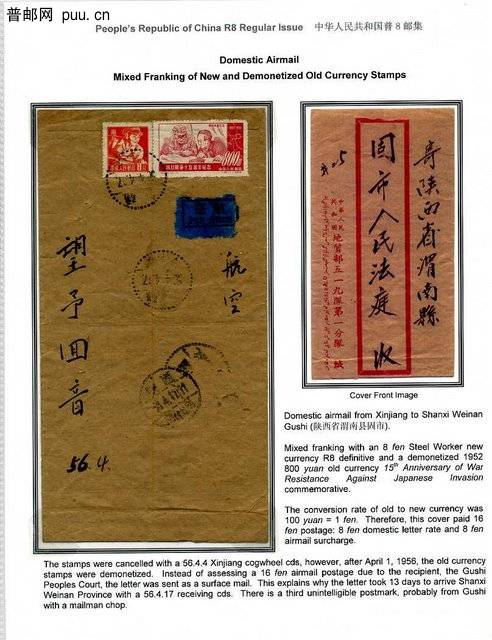 普邮网 puu.cn
People's Republic of China R8 Regular Issue 中华人民共和国普8邮集
Domestic Airmail
Mixed Franking of New and Demonetized Old Currency Stamps
800
航空
望予回音
56.4.
寄陕西省渭南縣
固市人民法庭 收
中華人民共和国地質部五一九隊第一分隊 缄
Cover Front Image
Domestic airmail from Xinjiang to Shanxi Weinan
Gushi (陕西省渭南县固市).
Mixed franking with an 8 fen Steel Worker new
currency R8 definitive and a demonetized 1952
800 yuan old currency 15th Anniversary of War
Resistance Against Japanese Invasion
commemorative.
The conversion rate of old to new currency was
100 yuan = 1 fen. Therefore, this cover paid 16
fen postage: 8 fen domestic letter rate and 8 fen
airmail surcharge.
The stamps were cancelled with a 56.4.4 Xinjiang cogwheel cds, however, after April 1, 1956, the old currency
stamps were demonetized. Instead of assessing a 16 fen airmail postage due to the recipient, the Gushi
Peoples Court, the letter was sent as a surface mail. This explains why the letter took 13 days to arrive Shanxi
Weinan Province with a 56.4.17 receiving cds. There is a third unintelligible postmark, probably from Gushi
with a mailman chop.